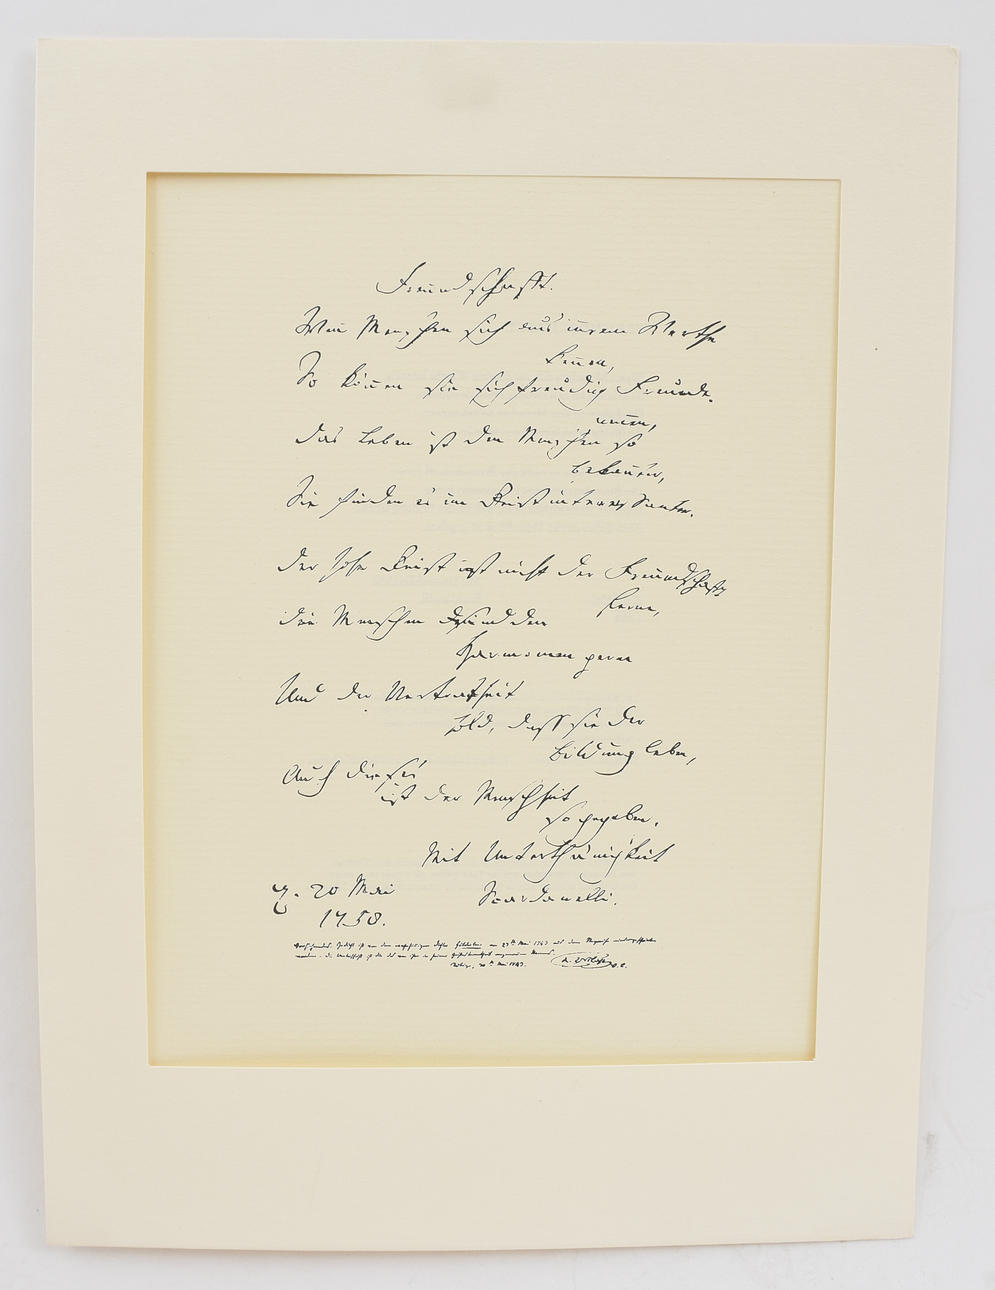 Freundschafft.
Wenn Menschen sich aus innrem Werthe
kennen,
So können sie sich freudig Freunde
nennen,
Das Leben ist den Menschen so
bekannter,
Sie finden es im Geist interessanter.
Der hohe Geist ist nicht der Freundschafft
ferne,
Die Menschen sind den
Harmonien gerne
Und der Vertrautheit
hold, daß sie der
Bildung leben,
Auch dieses
ist der Menschheit
so gegeben.
Mit Unterthänigkeit
d. 20 Mai
Scardanelli.
1758.